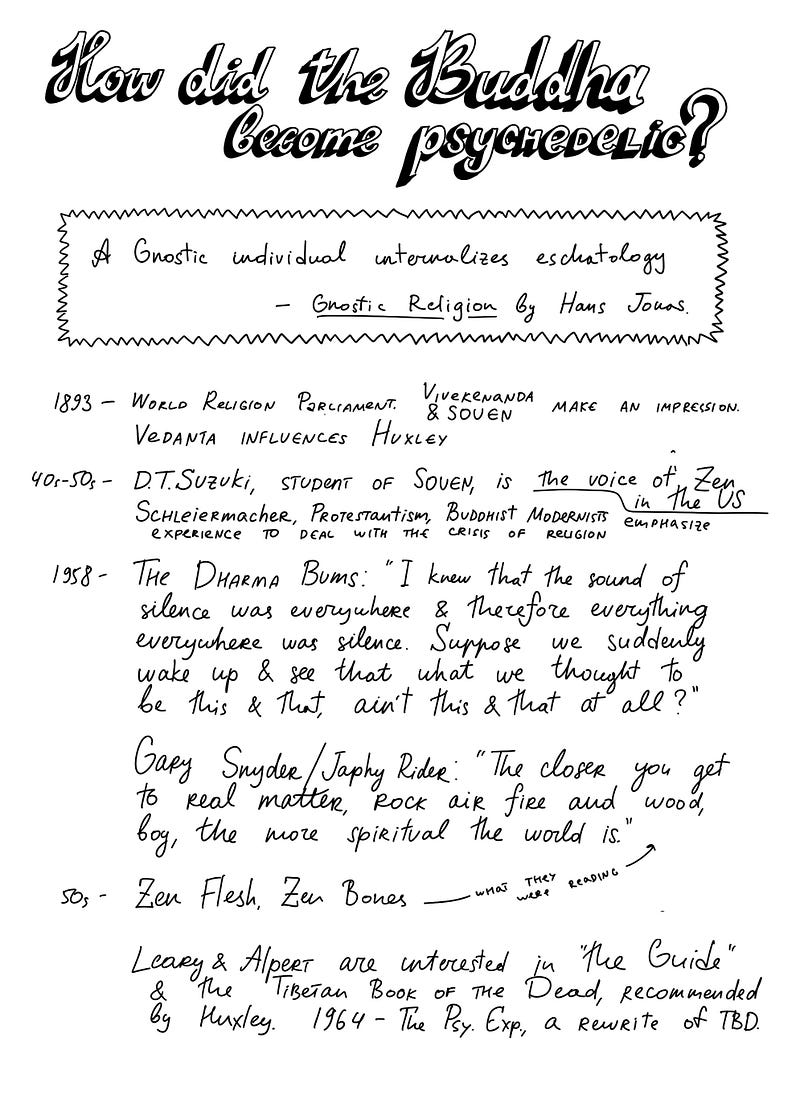 How did the Buddha
become psychedelic?
A Gnostic individual internalizes eschatology
— Gnostic Religion by Hans Jonas.
1893 — World Religion Parliament. Vivekenanda & Soyen make an impression.
Vedanta influences Huxley
40s-50s — D.T. Suzuki, student of Soyen, is the voice of Zen in the US
Schleiermacher, Protestantism, Buddhist Modernists emphasize
experience to deal with the crisis of religion
1958 — The Dharma Bums: "I knew that the sound of
silence was everywhere & therefore everything
everywhere was silence. Suppose we suddenly
wake up & see that what we thought to
be this & that, ain't this & that at all?"
Gary Snyder/Japhy Rider: "The closer you get
to real matter, rock air fire and wood,
boy, the more spiritual the world is."
50s — Zen Flesh, Zen Bones — what they were reading
Leary & Alpert are interested in "the Guide"
& the Tibetan Book of the Dead, recommended
by Huxley. 1964 — The Psy. Exp., a rewrite of TBD.